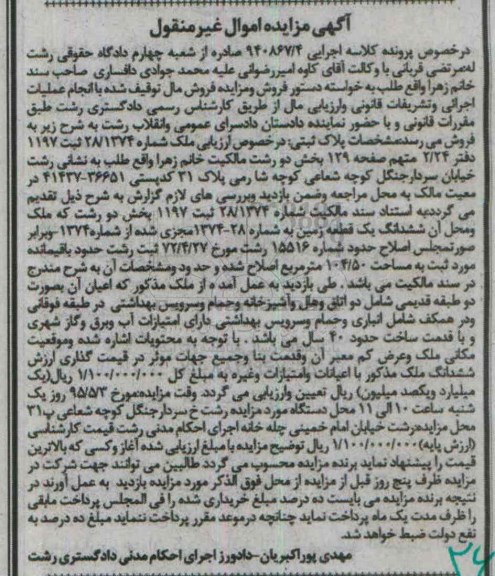 آگهی مزایده اموال غیر منقول
درخصوص پرونده کلاسه اجرایی ۹۴۰۸۶۷/۴ صادره از شعبه چهارم دادگاه حقوقی رشت
له مرتضی قربانی با وکالت آقای کاوه امیررضوانی علیه محمد جوادی دافساری صاحب سند
خانم زهرا واقع طلب به خواسته دستور فروش ومزایده فروش مال توقیف شده با انجام عملیات
اجرائی وتشریفات قانونی وارزیابی مال از طریق کارشناس رسمی دادگستری رشت طبق
مقررات قانونی و با حضور نماینده دادستان دادسرای عمومی وانقلاب رشت به شرح زیر به
فروش می رسد:مشخصات پلاک ثبتی: درخصوص ارزیابی ملک شماره ۲۸/۱۳۷۴ ثبت ۱۱۹۷
دفتر ۲/۲۴ متهم صفحه ۱۲۹ بخش دو رشت مالکیت خانم زهرا واقع طلب به نشانی رشت
خیابان سردارجنگل کوچه شعاعی کوچه شا رمی پلاک ۳۱ کدپستی ۳۶۶۵۱-۴۱۴۳۷ در
معیت مالک به محل مراجعه وضمن بازدید وبررسی های لازم گزارش به شرح ذیل تقدیم
می گردد:به استناد سند مالکیت شماره ۲۸/۱۳۷۴ ثبت ۱۱۹۷ بخش دو رشت که ملک
ومحل آن ششدانگ یک قطعه زمین به شماره ۲۸-۱۳۷۴مجزی شده از شماره۱۳۷۴-وبرابر
صورتمجلس اصلاح حدود شماره ۱۵۵۱۶ رشت مورخ ۷۲/۴/۲۷ ثبت رشت حدود باقیمانده
مورد ثبت به مساحت ۱۰۴/۵۰ مترمربع اصلاح شده و حد ود ومشخصات آن به شرح مندرج
در سند مالکیت می باشد . طی بازدید به عمل آمده از ملک مذکور که اعیان آن بصورت
دو طبقه قدیمی شامل دو اتاق وهال وآشپزخانه وحمام وسرویس بهداشتی در طبقه فوقانی
ودر همکف شامل انباری وحمام وسرویس بهداشتی دارای امتیازات آب وبرق وگاز شهری
و با قدمت ساخت حدود ۴۰ سال می باشد . با توجه به محتویات اشاره شده وموقعیت
مکانی ملک وعرض کم معبر آن وقدمت بنا وجمیع جهات موثر در قیمت گذاری ارزش
ششدانگ ملک مذکور با اعیانات وامتیازات وغیره به مبلغ کل ۱/۱۰۰/۰۰۰/۰۰۰ ریال(یک
میلیارد ویکصد میلیون) ریال تعیین وارزیابی می گردد. وقت مزایده:مورخ ۹۵/۵/۳ روز یک
شنبه ساعت ۱۰ الی ۱۱ محل دستگاه مورد مزایده رشت خ سردارجنگل کوچه شعاعی پ۳۱
محل مزایده:رشت خیابان امام خمینی چله خانه اجرای احکام مدنی رشت قیمت کارشناسی
(ارزش پایه)۱/۱۰۰/۰۰۰/۰۰۰ ریال توضیح مزایده با مبلغ ارزیابی شده آغاز وکسی که بالاترین
قیمت را پیشنهاد نماید برنده مزایده محسوب می گردد.طالبین می توانند جهت شرکت در
مزایده ظرف پنج روز قبل از مزایده از محل فوق الذکر مورد مزایده بازدید به عمل آورند در
نتیجه برنده مزایده می بایست ده درصد مبلغ خریداری شده را فی المجلس پرداخت مابقی
را ظرف مدت یک ماه پرداخت نماید چنانچه درموعد مقرر پرداخت ننماید مبلغ ده درصد به
نفع دولت ضبط خواهد شد.
مهدی پوراکبریان-دادورز اجرای احکام مدنی دادگستری رشت
۲۴